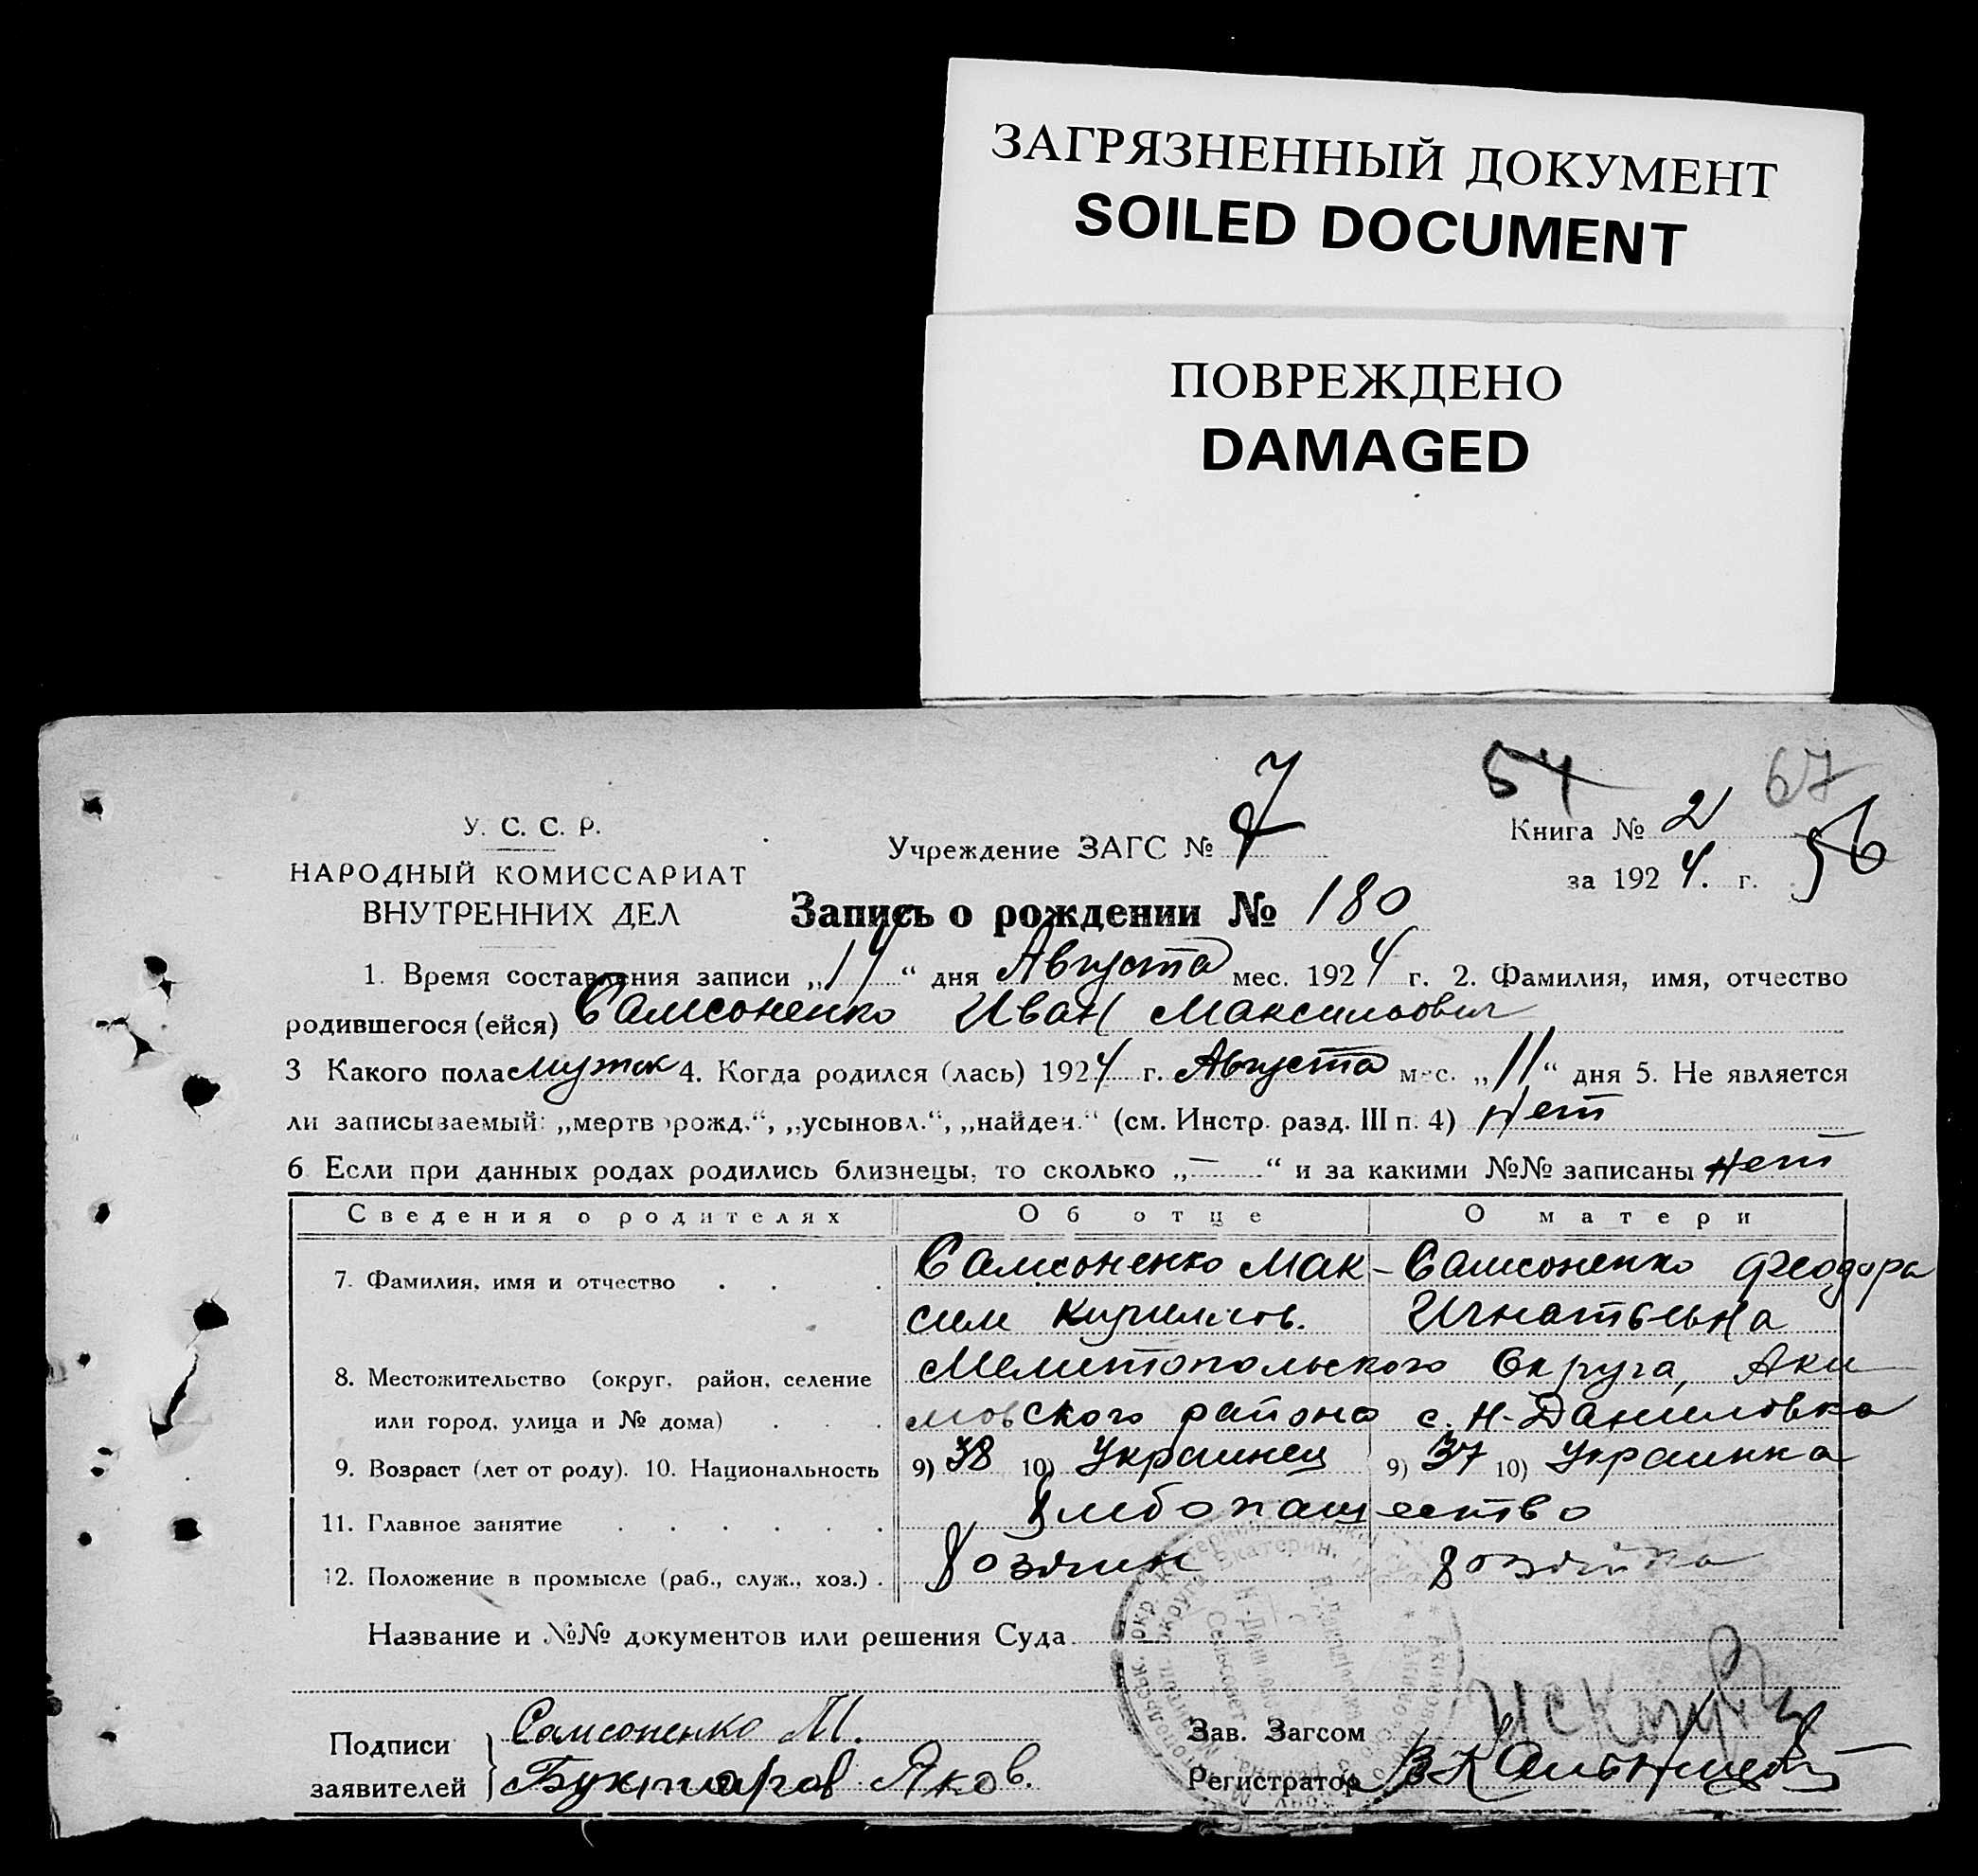 ЗАГРЯЗНЕННЫЙ ДОКУМЕНТ
SOILED DOCUMENT
ПОВРЕЖДЕНО
DAMAGED
54 67
У. С. С. Р.
НАРОДНЫЙ КОМИССАРИАТ
ВНУТРЕННИХ ДЕЛ
Учреждение ЗАГС № 7
Книга № 2
за 1924. г. 56
Запись о рождении № 180
1. Время составления записи „14“ дня Августа мес. 1924 г. 2. Фамилия, имя, отчество
родившегося (ейся) Самсоненко Иван Максимович
3 Какого пола мужск 4. Когда родился (лась) 1924 г. Августа мес. „11“ дня 5. Не является
ли записываемый: „мертворожд.“, „усыновл.“, „найден.“ (см. Инстр. разд. III п. 4) Нет
6 Если при данных родах родились близнецы, то сколько „—“ и за какими №№ записаны нет
Сведения о родителях Об отце О матери
7. Фамилия, имя и отчество Самсоненко Мак- Самсоненко Феодора
сим Кириллов. Игнатьевна
8. Местожительство (округ, район, селение Мелитопольского Округа, Аки
или город, улица и № дома) мовского района с. Н-Даниловка
9. Возраст (лет от роду). 10. Национальность 9) 38 10) Украинец 9) 37 10) Украинка
11. Главное занятие Хлебопашество
12. Положение в промысле (раб., служ., хоз.) Хозяин Хозяйка
Название и №№ документов или решения Суда
Подписи заявителей Самсоненко М.
Бухтияров Яков.
Зав. Загсом
Регистратор